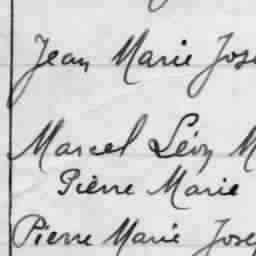 Jean Marie Jose
Marcel Léon M
Pierre Marie
Pierre Marie Josep